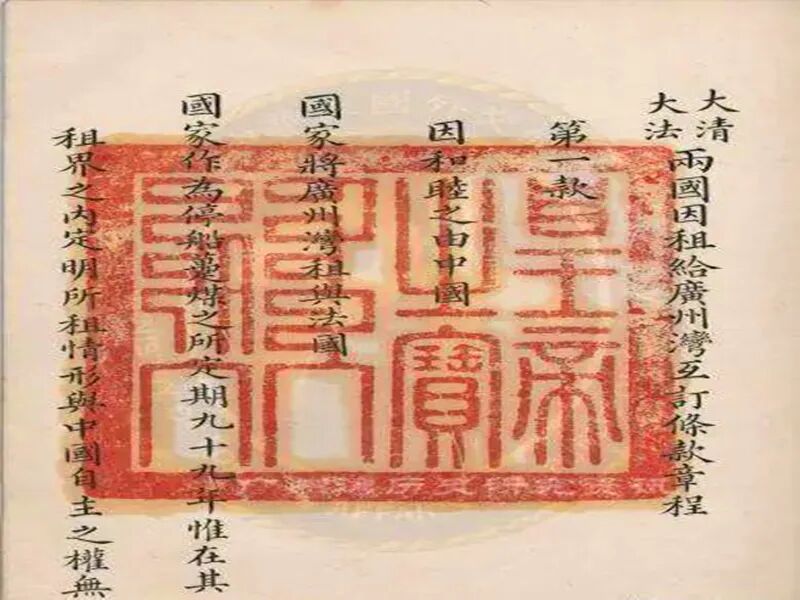 大清
大法
兩國因租給廣州灣互訂條款章程
第一款
因和睦之由中國
國家將廣州灣租與法國
國家作為停船躉煤之所定期九十九年惟在其
租界之內定明所租情形與中國自主之權無
皇帝之寶